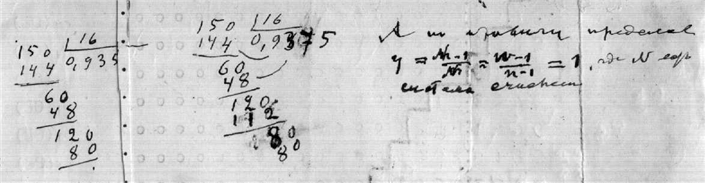 150 | 16
144 0,935
60
48
120
80
150 | 16
144 0,9375
60
48
120
112
80
80
А по правилу пределов
y = = = 1, где N есть
система счислен